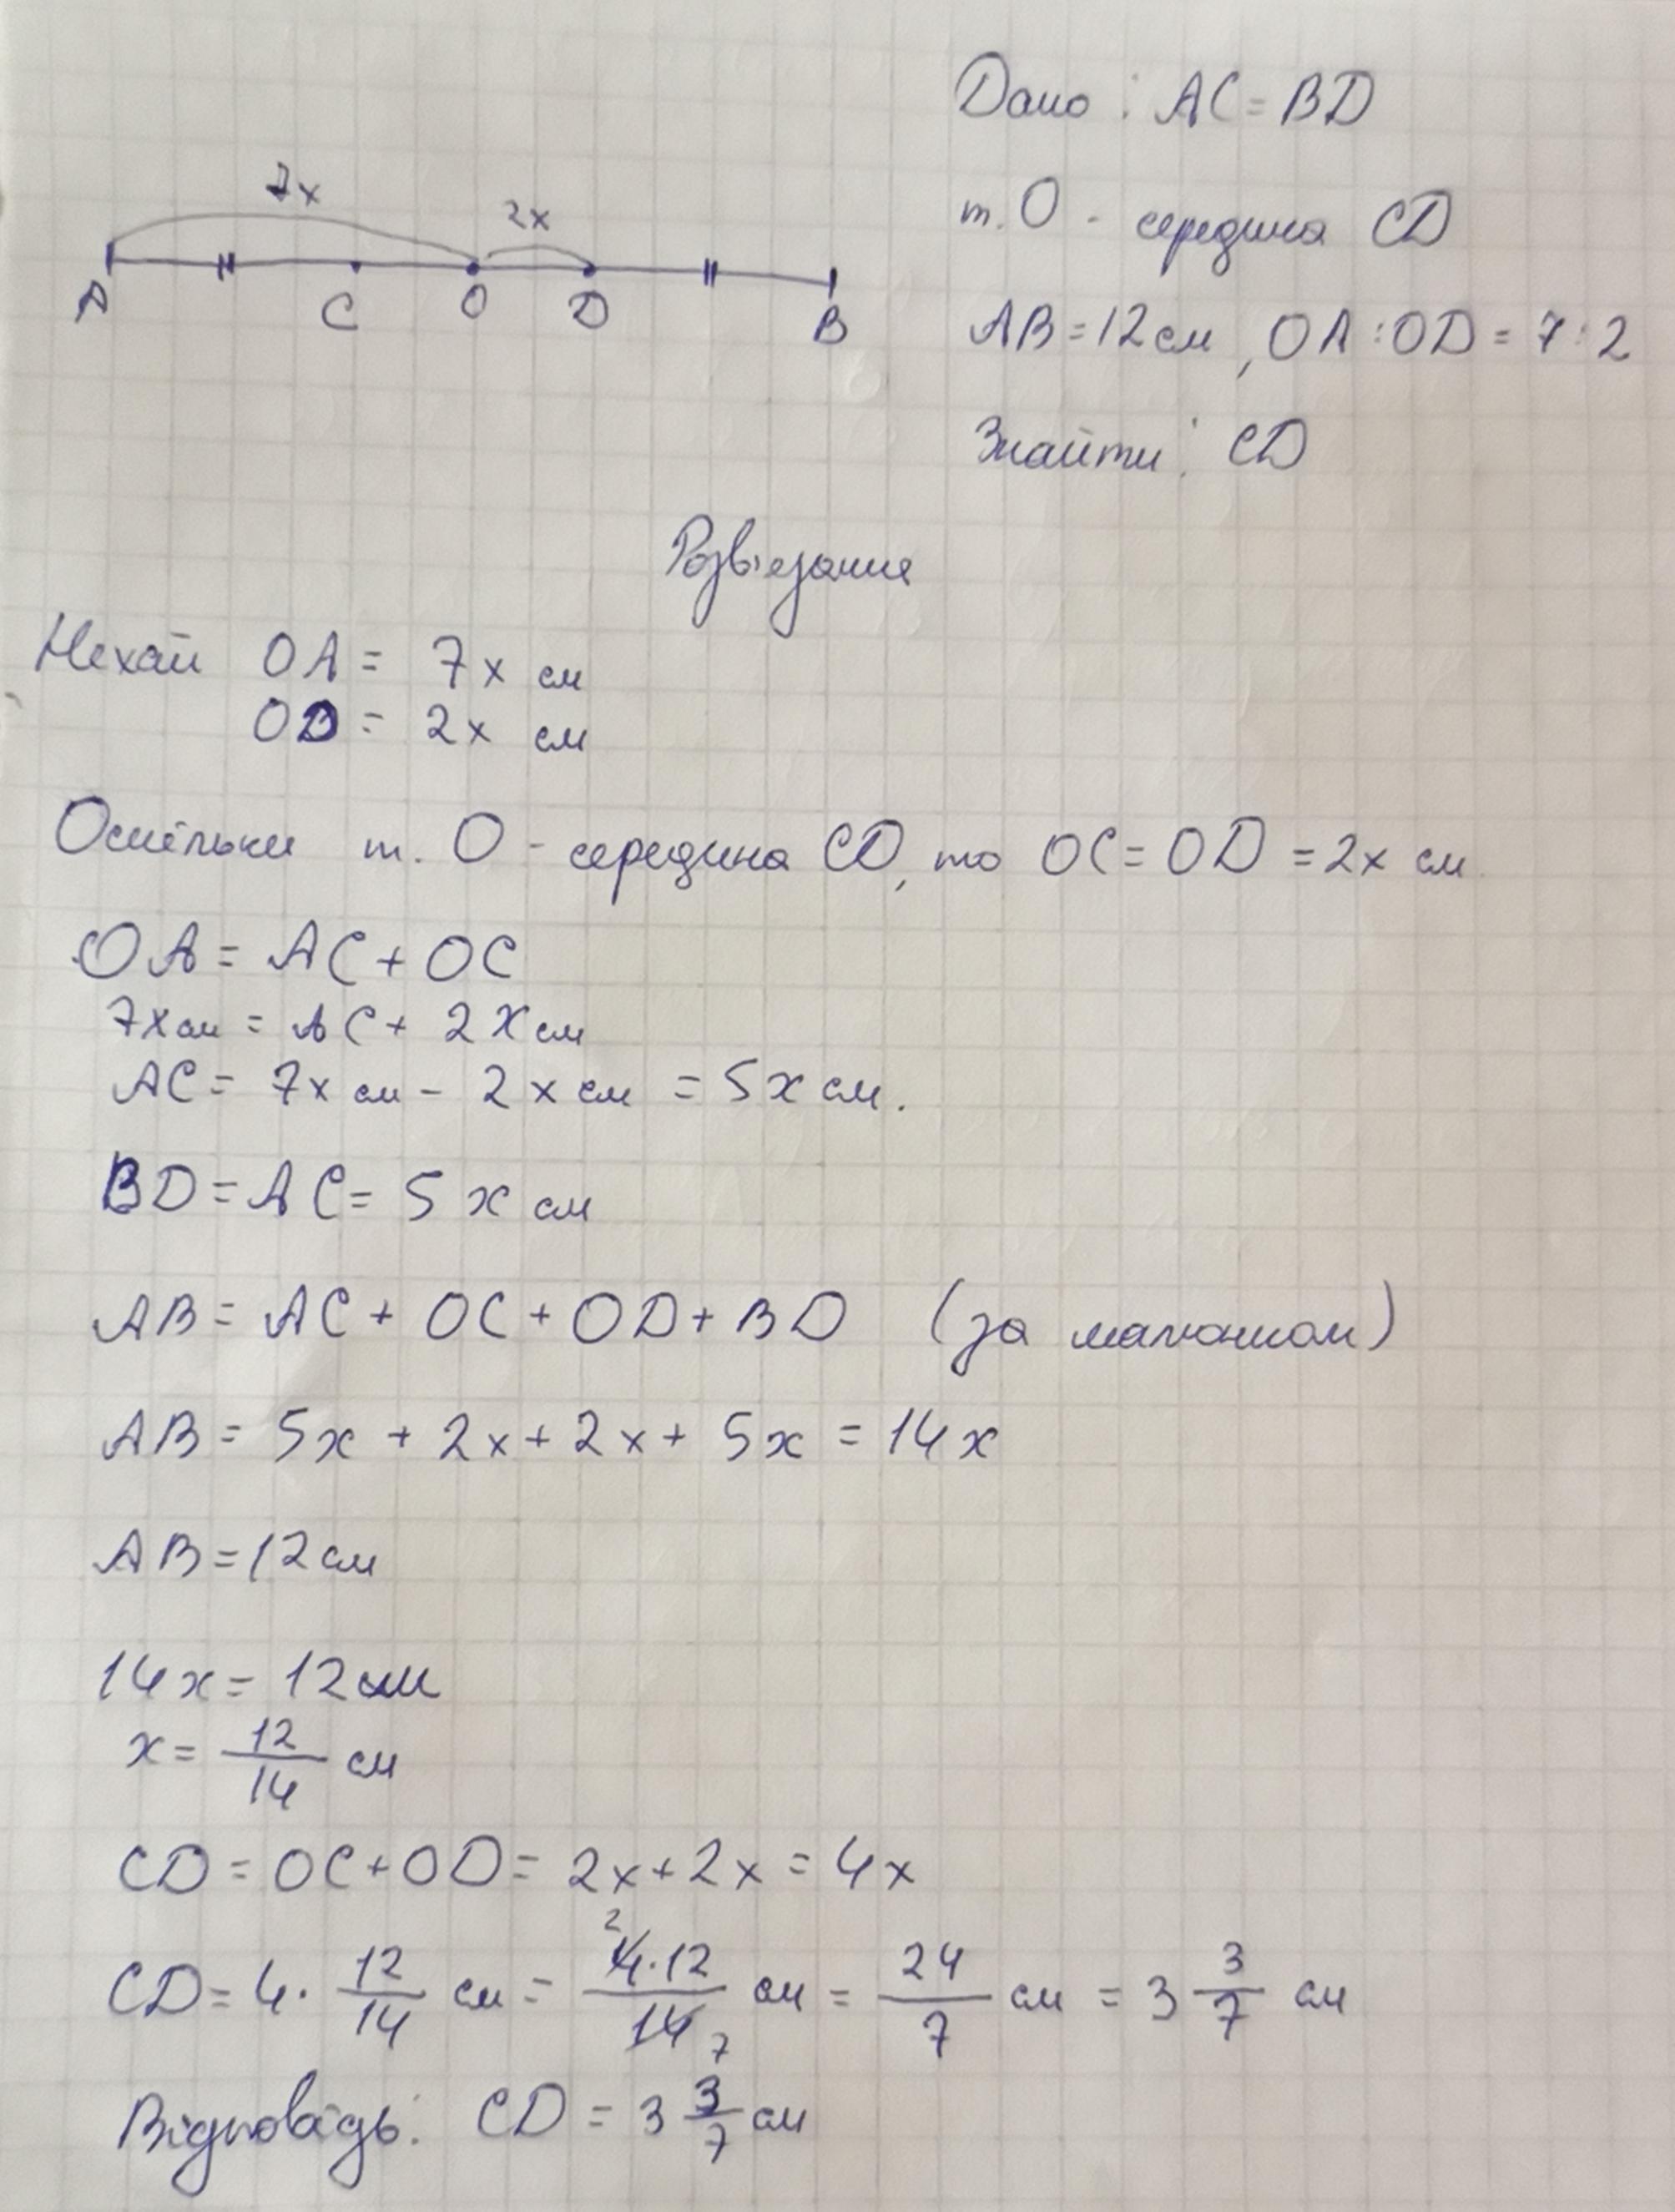 Дано : AC = BD
7x
2x
т. O - середина CD
A C O D B
AB = 12 см , OA : OD = 7 : 2
Знайти : CD
Розв'язання
Нехай OA = 7x см
OD = 2x см
Оскільки т. O - середина CD, то OC = OD = 2x см
OA = AC + OC
7x см = AC + 2x см
AC = 7x см - 2x см = 5x см.
BD = AC = 5x см
AB = AC + OC + OD + BD (за малюнком)
AB = 5x + 2x + 2x + 5x = 14x
AB = 12 см
14x = 12 см
x = 12/14 см
CD = OC + OD = 2x + 2x = 4x
CD = 4 · 12/14 см = 4 · 12/14 см = 24/7 см = 3 3/7 см
2
7
Відповідь: CD = 3 3/7 см